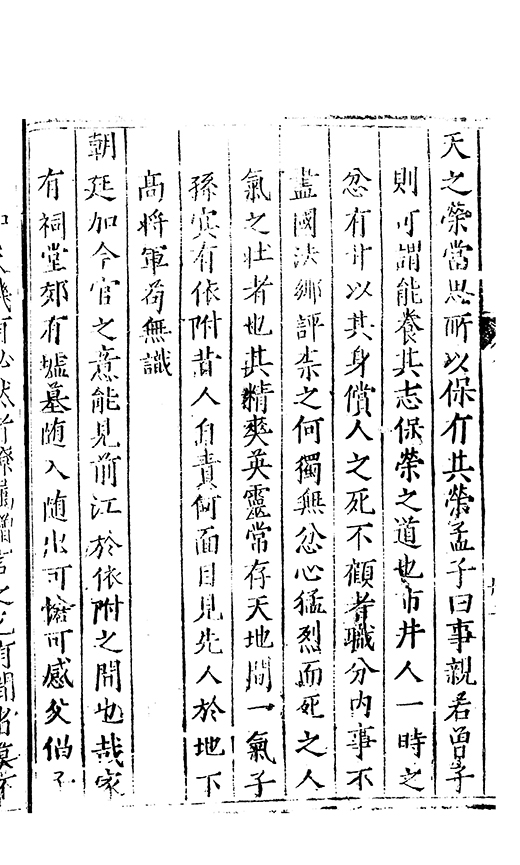 天之榮當思所以保有其榮孟子曰事親若曾子
則可謂能養其志保榮之道也市井人一時之
忿有甘以其身償人之死不顧者職分内事不
盡國法鄉評柰之何獨無忿心猛烈而死之人
氣之壯者也其精爽英靈常存天地間一氣子
孫實有依附昔人自責何面目見先人於地下
髙将軍荀無識
朝廷加今官之意能見前江於依附之間也哉家
有祠堂郊有墟墓随入随出可愴可感父伯子